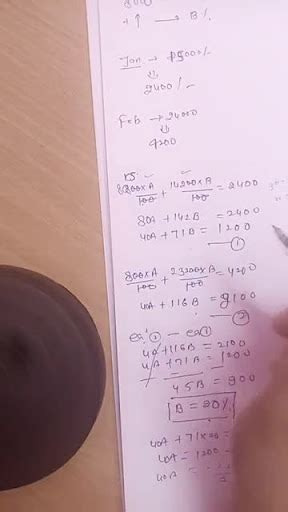 +↑ → B%
Jan → 15000/-
⇓
2400/-
Feb → 24000
⇓
4200
800×A/100 + 14200×B/100 = 2400
80A + 142B = 2400
40A + 71B = 1200
—①
800×A/100 + 23200×B/100 = 4200
40A + 116B = 2100
—②
eqⁿ② — eq①
40A + 116B = 2100
40A + 71B = 1200
45B = 900
B = 20%
40A + 71×20 =
40A = 1200 -
40A =